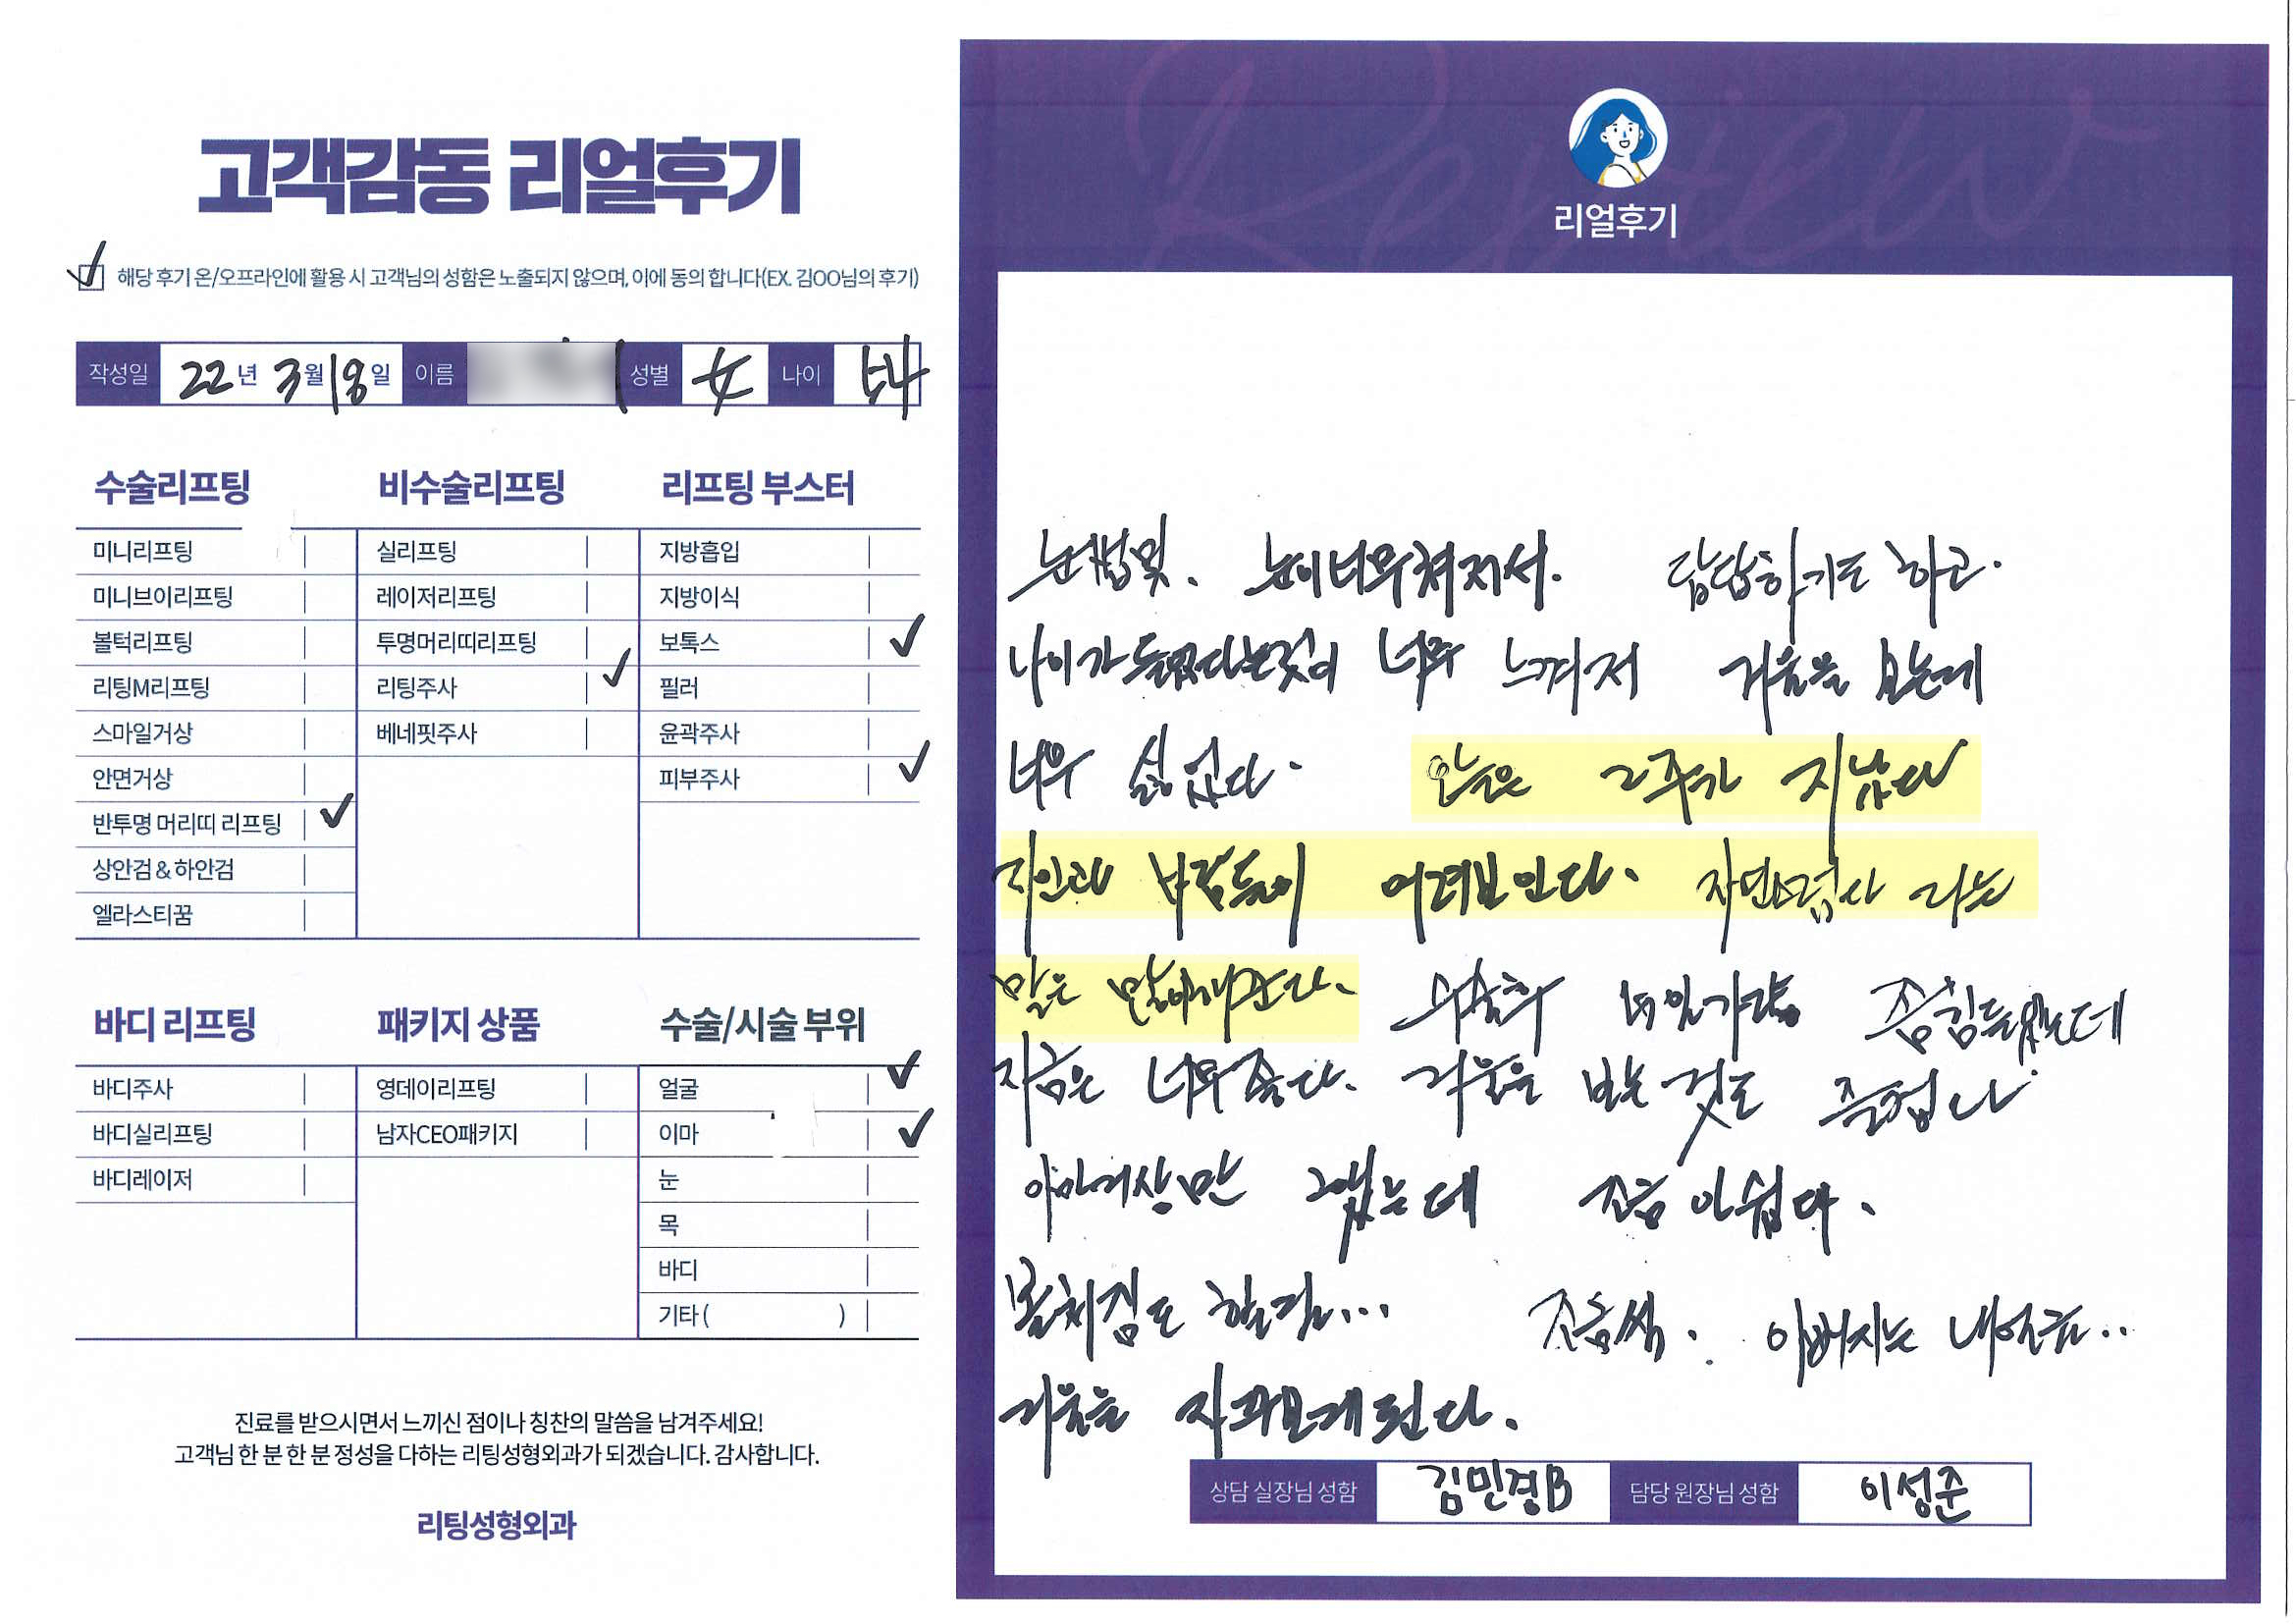 고객감동 리얼후기
해당 후기 온/오프라인에 활용 시 고객님의 성함은 노출되지 않으며, 이에 동의 합니다(EX. 김OO님의 후기)
작성일 22년 3월 18일 이름 성별 女 나이
수술리프팅
미니리프팅
미니브이리프팅
볼턱리프팅
리팅M리프팅
스마일거상
안면거상
반투명 머리띠 리프팅
상안검 & 하안검
엘라스티꿈
비수술리프팅
실리프팅
레이저리프팅
투명머리띠리프팅
리팅주사
베네핏주사
리프팅 부스터
지방흡입
지방이식
보톡스
필러
윤곽주사
피부주사
바디 리프팅
바디주사
바디실리프팅
바디레이저
패키지 상품
영데이리프팅
남자CEO패키지
수술/시술 부위
얼굴
이마
눈
목
바디
기타 ( )
진료를 받으시면서 느끼신 점이나 칭찬의 말씀을 남겨주세요!
고객님 한 분 한 분 정성을 다하는 리팅성형외과가 되겠습니다. 감사합니다.
리팅성형외과
Review
리얼후기
눈이너무쳐저서. 답답하기도 하고.
나이가 들었다는것이 너무 느껴저 거울을 보는데
너무 싫었다. 오늘은 2주가 지났다
어려보인다. 자연스럽다 라는
말을 많이해준다. 좀 힘들었는데
지금은 너무좋다. 거울을 보는 것도 즐겁다
이마거상만 했는데 조금 아쉽다.
볼처짐도 할걸... 조금씩. 이뻐지는 내얼굴..
거울을 자꾸보게된다.
상담 실장님 성함 김민경B 담당 원장님 성함 이성준